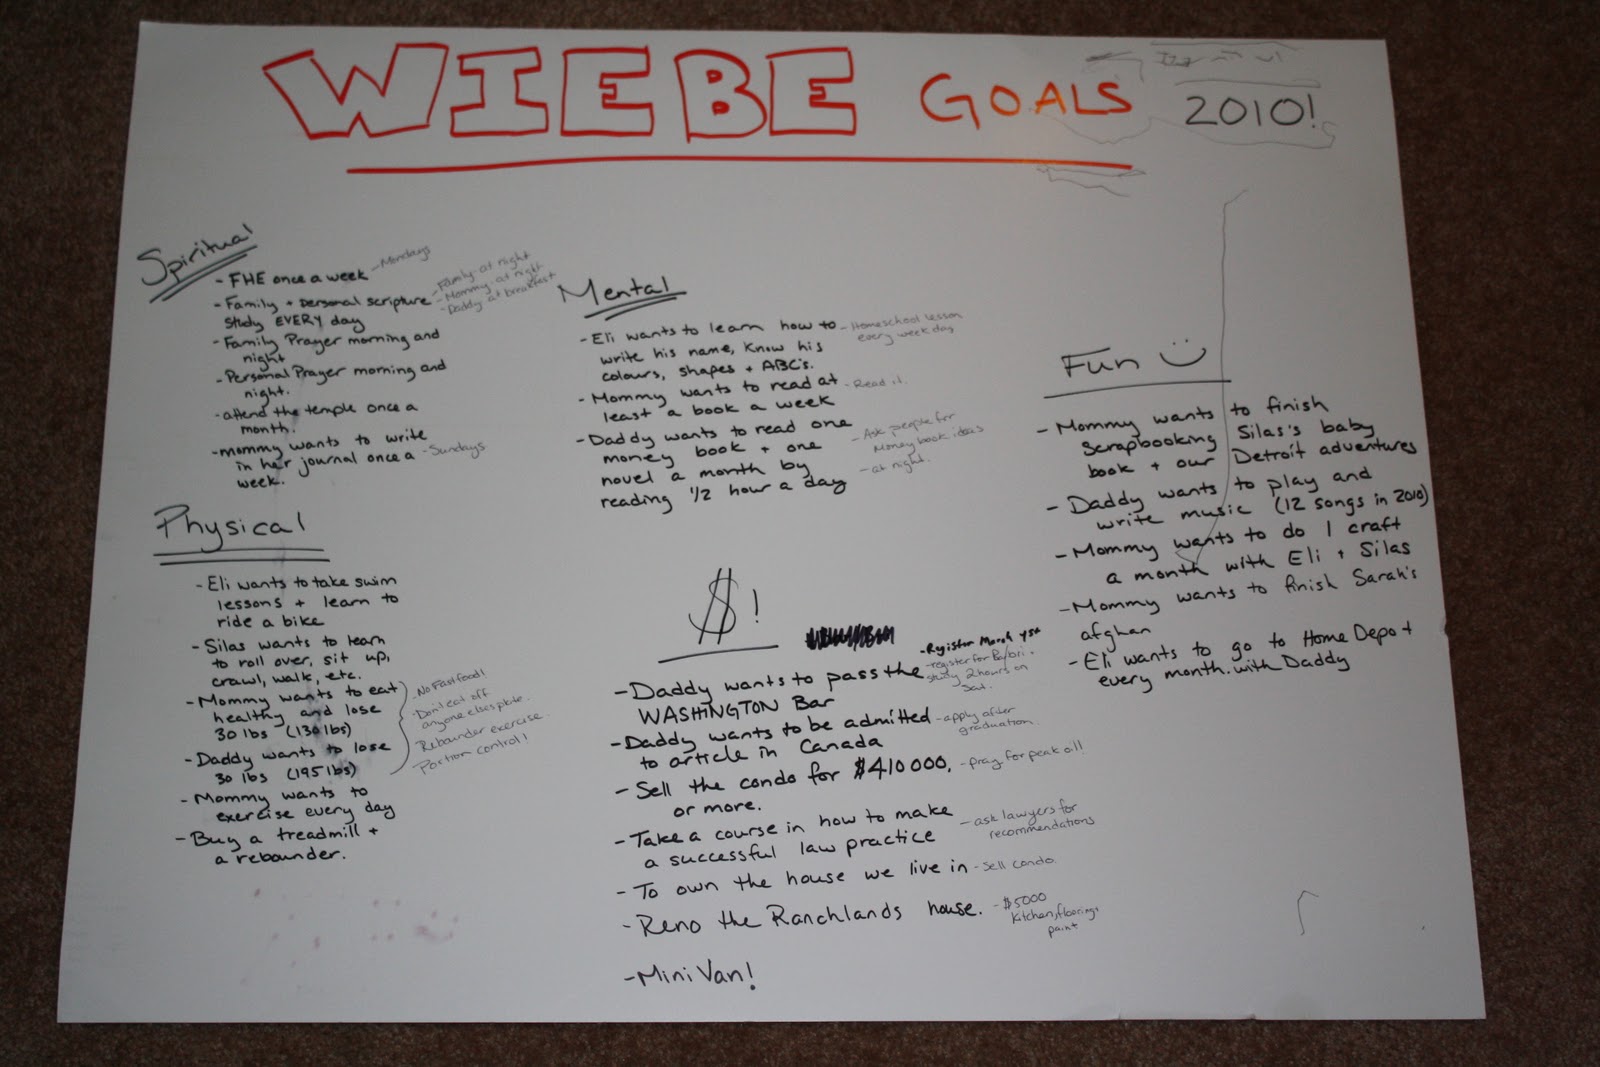 WIEBE GOALS 2010!
Spiritual
- FHE once a week - Mondays
- Family + personal scripture - Family at night
study EVERY day - Mommy at night
- Daddy at breakfast
- Family Prayer morning and
night
- Personal Prayer morning and
night.
- attend the temple once a
month.
- mommy wants to write
in her journal once a - Sundays
week.
Physical
- Eli wants to take swim
lessons + learn to
ride a bike
- Silas wants to learn
to roll over, sit up,
crawl, walk, etc.
- Mommy wants to eat
healthy and lose
30 lbs (130 lbs)
- Daddy wants to lose
30 lbs (195 lbs)
- No Fastfood!
- Dont eat off
anyone elses plate.
Rebounder exercise
Portion control!
- Mommy wants to
exercise every day
- Buy a treadmill +
a rebounder.
Mental
- Eli wants to learn how to - Homeschool lesson
write his name, know his every week day
colours, shapes + ABC's.
- Mommy wants to read at - Read it.
least a book a week
- Daddy wants to read one - Ask people for
money book + one Money book ideas
novel a month by - at night.
reading 1/2 hour a day
$!
- Register March 1st
- Daddy wants to pass the - register for Barbri +
WASHINGTON Bar study 2 hours on
Sat.
- Daddy wants to be admitted - apply after
to article in Canada graduation
- Sell the condo for $410 000, - pray for peak oil
or more.
- Take a course in how to make - ask lawyers for
a successful law practice recommendations
- To own the house we live in - sell condo.
- Reno the Ranchlands house. - $5000
Kitchen, floorings
paint
- Mini Van!
Fun
- Mommy wants to finish
Scrapbooking Silas's baby
book + our Detroit adventures
- Daddy wants to play and
write music (12 songs in 2010)
- Mommy wants to do 1 craft
a month with Eli + Silas
- Mommy wants to finish Sarah's
afghan
- Eli wants to go to Home Depot
every month. with Daddy